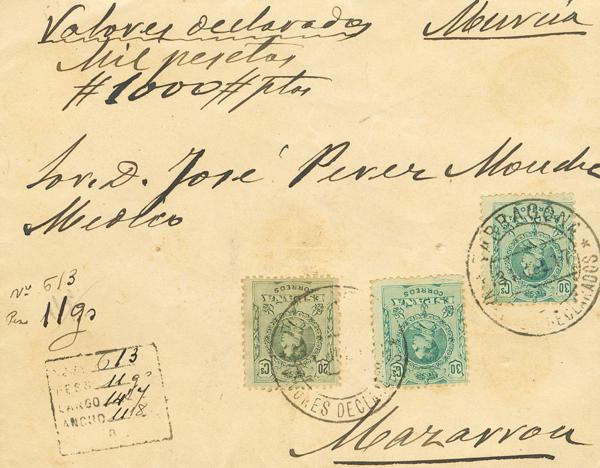 Valores declarados Murcia
Mil pesetas
#1000# ptas
Sor. D. José Perez
Medico
Nº 613
Peso 11 gs
613
PESO 11 gs
LARGO 147
ANCHO 118
TARRAGONA *
DECLARADOS
ESPAÑA
CORREOS
20 CS
ESPAÑA
CORREOS
30 CS
CORREOS
30 CS
VALORES DECLARADOS
Mazarron